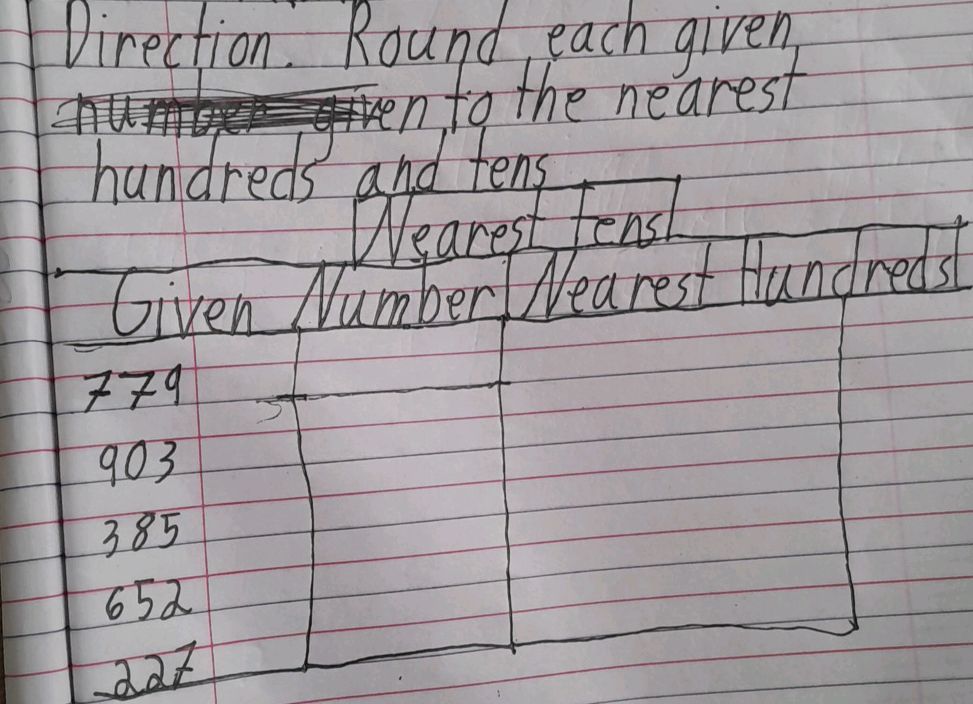 Direction. Round each given
number given to the nearest
hundreds and tens
Nearest tens
Given Number Nearest Hundreds
779
903
385
652
227